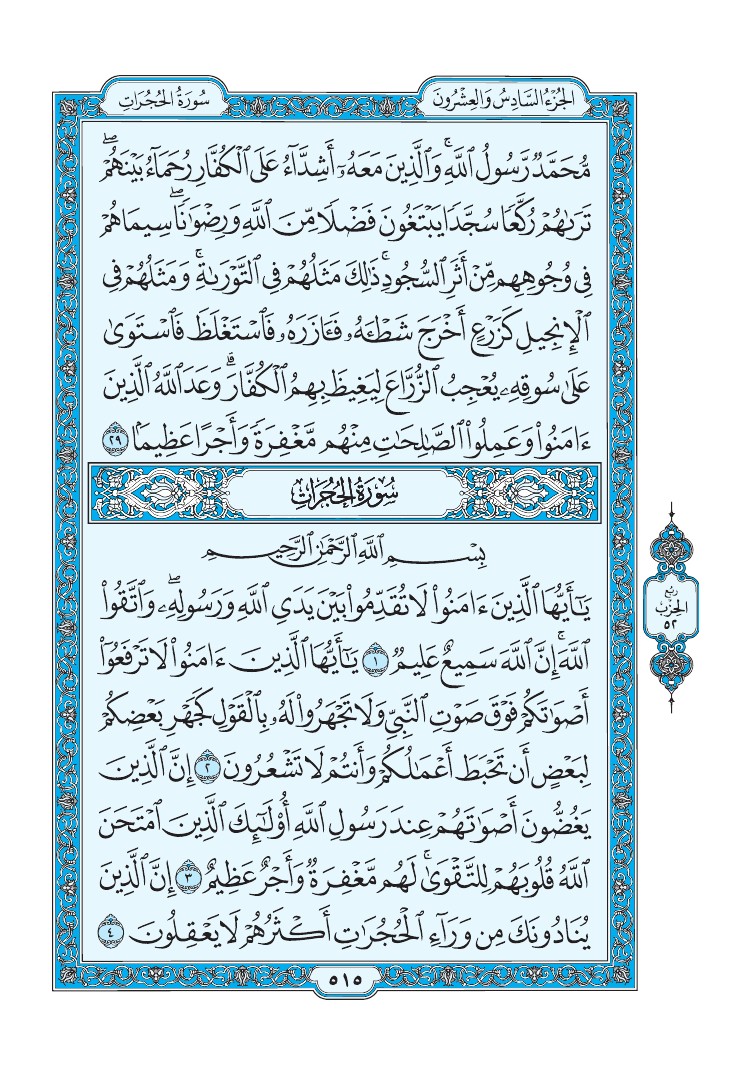 سُورَةُ الحُجُرَاتِ
الجُزْءُ السَّادِسُ وَالعِشْرُونَ
مُّحَمَّدٌ رَّسُولُ ٱللَّهِۚ وَٱلَّذِينَ مَعَهُۥٓ أَشِدَّآءُ عَلَى ٱلْكُفَّارِ رُحَمَآءُ بَيْنَهُمْۖ
تَرَىٰهُمْ رُكَّعًا سُجَّدًا يَبْتَغُونَ فَضْلًا مِّنَ ٱللَّهِ وَرِضْوَٰنًاۖ سِيمَاهُمْ
فِى وُجُوهِهِم مِّنْ أَثَرِ ٱلسُّجُودِۚ ذَٰلِكَ مَثَلُهُمْ فِى ٱلتَّوْرَىٰةِۚ وَمَثَلُهُمْ فِى
ٱلْإِنجِيلِ كَزَرْعٍ أَخْرَجَ شَطْـَٔهُۥ فَـَٔازَرَهُۥ فَٱسْتَغْلَظَ فَٱسْتَوَىٰ
عَلَىٰ سُوقِهِۦ يُعْجِبُ ٱلزُّرَّاعَ لِيَغِيظَ بِهِمُ ٱلْكُفَّارَۗ وَعَدَ ٱللَّهُ ٱلَّذِينَ
ءَامَنُوا۟ وَعَمِلُوا۟ ٱلصَّٰلِحَٰتِ مِنْهُم مَّغْفِرَةً وَأَجْرًا عَظِيمًۢا ٢٩
سُورَةُ الحُجُرَاتِ
بِسْمِ ٱللَّهِ ٱلرَّحْمَٰنِ ٱلرَّحِيمِ
يَٰٓأَيُّهَا ٱلَّذِينَ ءَامَنُوا۟ لَا تُقَدِّمُوا۟ بَيْنَ يَدَىِ ٱللَّهِ وَرَسُولِهِۦۖ وَٱتَّقُوا۟
ٱللَّهَۚ إِنَّ ٱللَّهَ سَمِيعٌ عَلِيمٌ ١ يَٰٓأَيُّهَا ٱلَّذِينَ ءَامَنُوا۟ لَا تَرْفَعُوٓا۟
أَصْوَٰتَكُمْ فَوْقَ صَوْتِ ٱلنَّبِىِّ وَلَا تَجْهَرُوا۟ لَهُۥ بِٱلْقَوْلِ كَجَهْرِ بَعْضِكُمْ
لِبَعْضٍ أَن تَحْبَطَ أَعْمَٰلُكُمْ وَأَنتُمْ لَا تَشْعُرُونَ ٢ إِنَّ ٱلَّذِينَ
يَغُضُّونَ أَصْوَٰتَهُمْ عِندَ رَسُولِ ٱللَّهِ أُو۟لَٰٓئِكَ ٱلَّذِينَ ٱمْتَحَنَ
ٱللَّهُ قُلُوبَهُمْ لِلتَّقْوَىٰۚ لَهُم مَّغْفِرَةٌ وَأَجْرٌ عَظِيمٌ ٣ إِنَّ ٱلَّذِينَ
يُنَادُونَكَ مِن وَرَآءِ ٱلْحُجُرَٰتِ أَكْثَرُهُمْ لَا يَعْقِلُونَ ٤
رُبْع
الحِزْبِ
٥٢
٥١٥